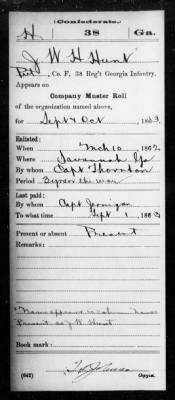 (Confederate.)
H 38 Ga.
J. W. H. Hunt
Pvt, Co. F, 38 Reg't Georgia Infantry.
Appears on
Company Muster Roll
of the organization named above,
for Sept & Oct, 1863.
Enlisted:
When Mch 10, 1862.
Where Savannah Ga
By whom Capt Thornton
Period 3 yrs or the war
Last paid:
By whom Capt Jernigan
To what time Sept 1, 1863
Present or absent Present
Remarks:
Name appears in column Names
Present as J W Hunt.
Book mark:
(642) Copyist.